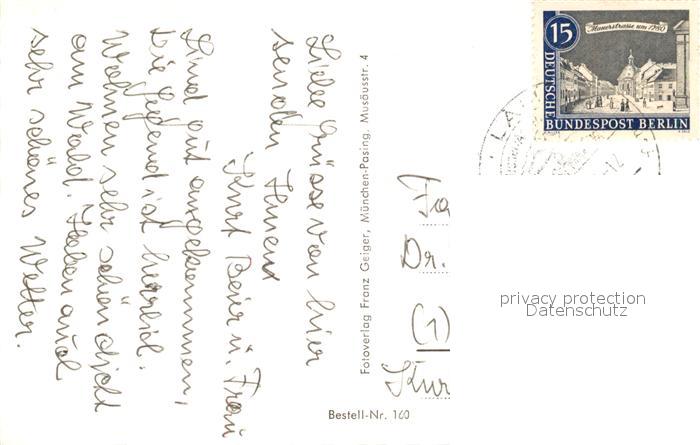 Liebe Grüsse von hier
senden Ihnen
Kurt Beier u. Frau
Sind gut angekommen,
die Gegend ist herrlich.
Wohnen sehr schön dicht
am Wald. Haben auch
sehr schönes Wetter.
Fotoverlag Franz Geiger, München-Pasing, Musäusstr. 4
Bestell-Nr. 160
Mauerstrasse um 1780
15
DEUTSCHE
BUNDESPOST BERLIN
Dr.
(1)
Kur
privacy protection
Datenschutz